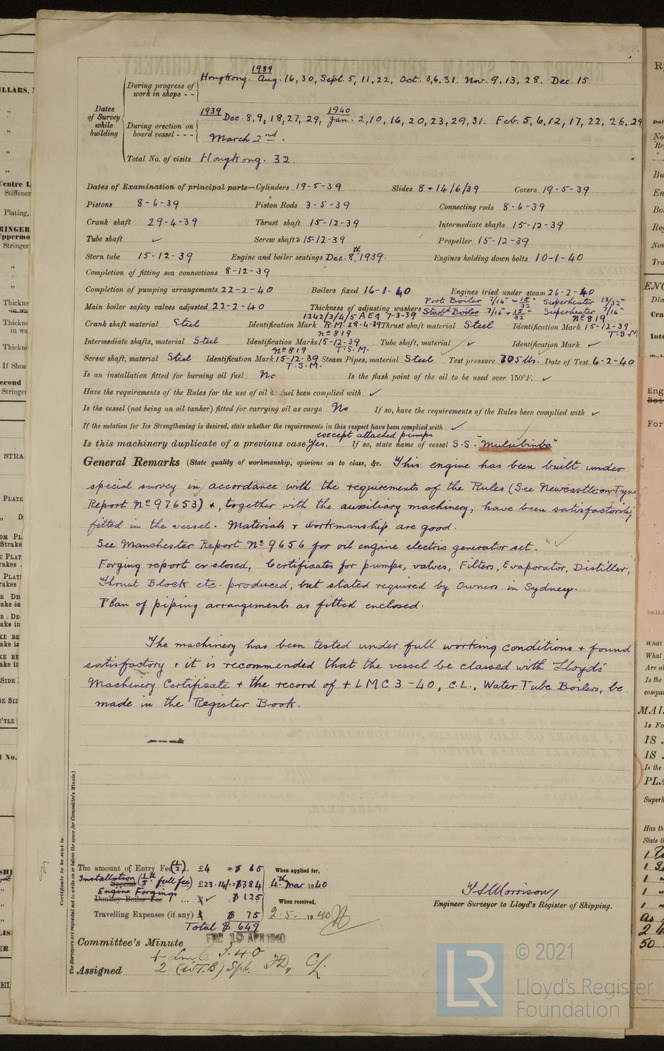 1939
During progress of work in shops - - Hongkong. Aug. 16, 30, Sept. 5, 11, 22, Oct. 3, 6, 31. Nov. 9, 13, 28. Dec. 15.
Dates of Survey while building
1939 1940
During erection on board vessel - - - Dec. 8, 9, 18, 27, 29, Jan. 2, 10, 16, 20, 23, 29, 31. Feb. 5, 6, 12, 17, 22, 26, 29
March 2nd.
Total No. of visits Hongkong. 32.
Dates of Examination of principal parts—Cylinders 19-5-39 Slides 8 & 14/6/39 Covers 19-5-39
Pistons 8-6-39 Piston Rods 3-5-39 Connecting rods 8-6-39
Crank shaft 29-4-39 Thrust shaft 15-12-39 Intermediate shafts 15-12-39
Tube shaft ✓ Screw shaft 15-12-39 Propeller 15-12-39
Stern tube 15-12-39 Engine and boiler seatings Dec. 8th 1939. Engines holding down bolts 10-1-40
Completion of fitting sea connections 8-12-39
Completion of pumping arrangements 22-2-40 Boilers fixed 16-1-40 Engines tried under steam 26-2-40
Main boiler safety valves adjusted 22-2-40 Thickness of adjusting washers Port Boiler Superheater
Stard Boiler Superheater
Crank shaft material Steel Identification Mark 1242/3/4/5 A E G 7-3-39 R.M. 28-4-39 Thrust shaft material Steel Identification Mark No 819 15-12-39 T.S.M.
Intermediate shafts, material Steel Identification Marks No 819 15-12-39 T.S.M. Tube shaft, material ✓ Identification Mark ✓
Screw shaft, material Steel Identification Mark No 819 15-12-39 T.S.M. Steam Pipes, material Steel Test pressure lbs. Date of Test 6-2-40
Is an installation fitted for burning oil fuel No Is the flash point of the oil to be used over 150°F. ✓
Have the requirements of the Rules for the use of oil as fuel been complied with ✓
Is the vessel (not being an oil tanker) fitted for carrying oil as cargo No If so, have the requirements of the Rules been complied with ✓
If the notation for Ice Strengthening is desired, state whether the requirements in this respect have been complied with ✓
except attached pumps
Is this machinery duplicate of a previous case Yes. If so, state name of vessel S.S. "Mulubinba"
General Remarks (State quality of workmanship, opinions as to class, &c. This engine has been built under
special survey in accordance with the requirements of the Rules (See Newcastle on Tyne
Report No 97653) &, together with the auxiliary machinery, have been satisfactorily
fitted in the vessel. Materials & workmanship are good.
See Manchester Report No 9656 for oil engine electric generator set.
Forging report enclosed, Certificates for pumps, valves, Filters, Evaporator, Distiller,
Thrust Block etc. produced, but stated required by Owners in Sydney.
Plan of piping arrangements as fitted enclosed.
The machinery has been tested under full working conditions & found
satisfactory & it is recommended that the vessel be classed with Lloyds'
Machinery Certificate & the record of + LMC 3-40, C.L., Water Tube Boilers, be
made in the Register Book.
Certificate to be sent to
The Surveyors are requested not to write on or below the space for Committee's Minute.)
The amount of Entry Fee £4 = $ 65 When applied for,
Installation full fee) £23.14/- = $384 4th Mar 1940
Engine Forgings
Donkey Boiler Fee $ 125 When received,
Travelling Expenses (if any) £ $ 75 2-5-1940
Total $ 649
T S Morrison
Engineer Surveyor to Lloyd's Register of Shipping.
Committee's Minute APR 1940
Assigned + LMC 3.40
2 (W.T.B) Spt. FD, CL
© 2021
LR
Lloyd's Register
Foundation